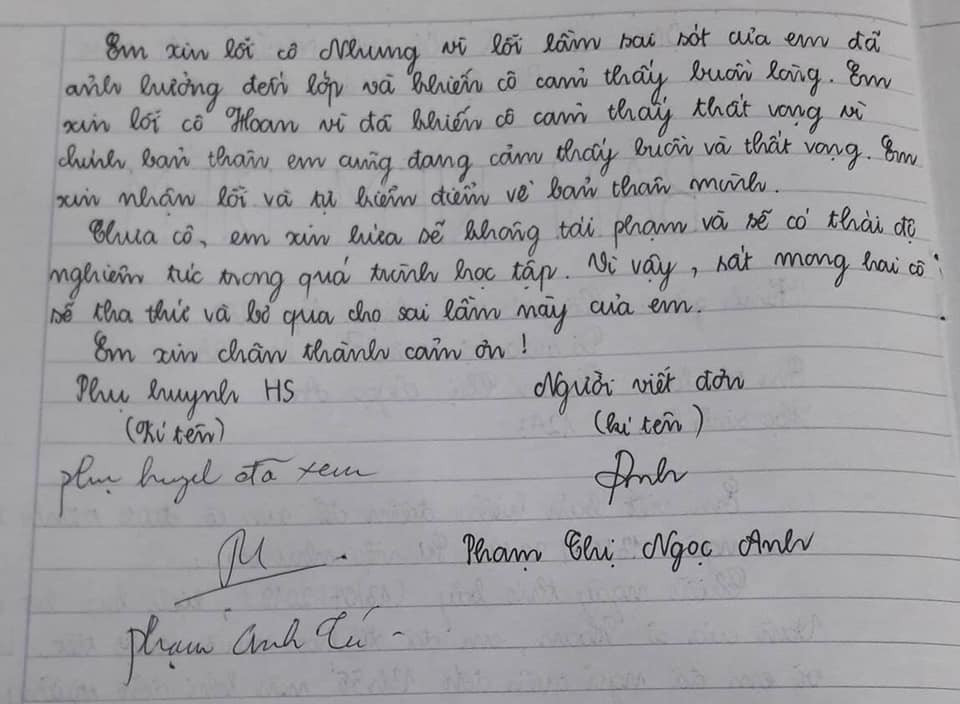 Em xin lỗi cô Nhung vì lỗi lầm sai sót của em đã
ảnh hưởng đến lớp và khiến cô cảm thấy buồn lòng. Em
xin lỗi cô Hoan vì đã khiến cô cảm thấy thất vọng vì
chính bản thân em cũng đang cảm thấy buồn và thất vọng. Em
xin nhận lỗi và tự kiểm điểm về bản thân mình.
Thưa cô, em xin hứa sẽ không tái phạm và sẽ có thái độ
nghiêm túc trong quá trình học tập. Vì vậy, rất mong hai cô
sẽ tha thứ và bỏ qua cho sai lầm này của em.
Em xin chân thành cảm ơn!
Phụ huynh HS
Người viết đơn
(Kí tên)
(kí tên)
phụ huynh đã xem
Anh
Phạm Thị Ngọc Anh
Phạm Anh Tú